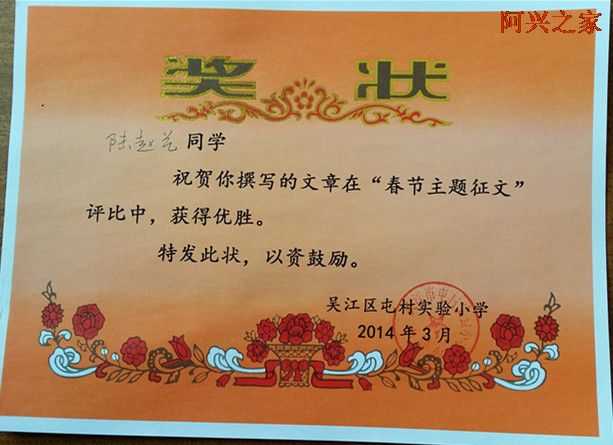 阿兴之家
奖 状
陆赵艺 同学
祝贺你撰写的文章在“春节主题征文”
评比中，获得优胜。
特发此状，以资鼓励。
吴江区屯村实验小学
2014 年 3 月